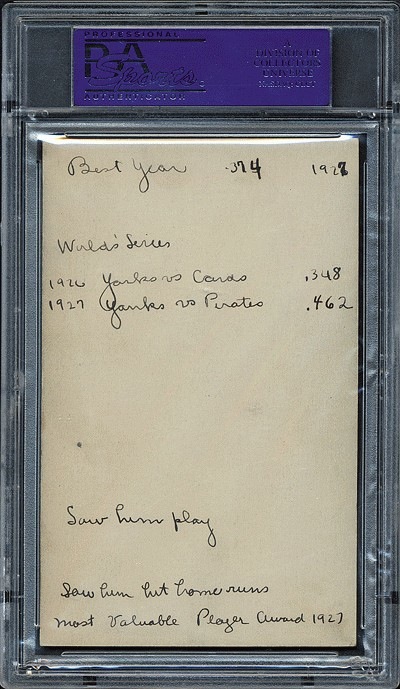 PROFESSIONAL
PSA
Sports
AUTHENTICATOR
A
DIVISION OF
COLLECTORS
UNIVERSE
Best Year .374 1927
World's Series
1926 Yanks vs Cards .348
1927 Yanks vs Pirates .462
Saw him play
Saw him hit home runs
most Valuable Player Award 1927